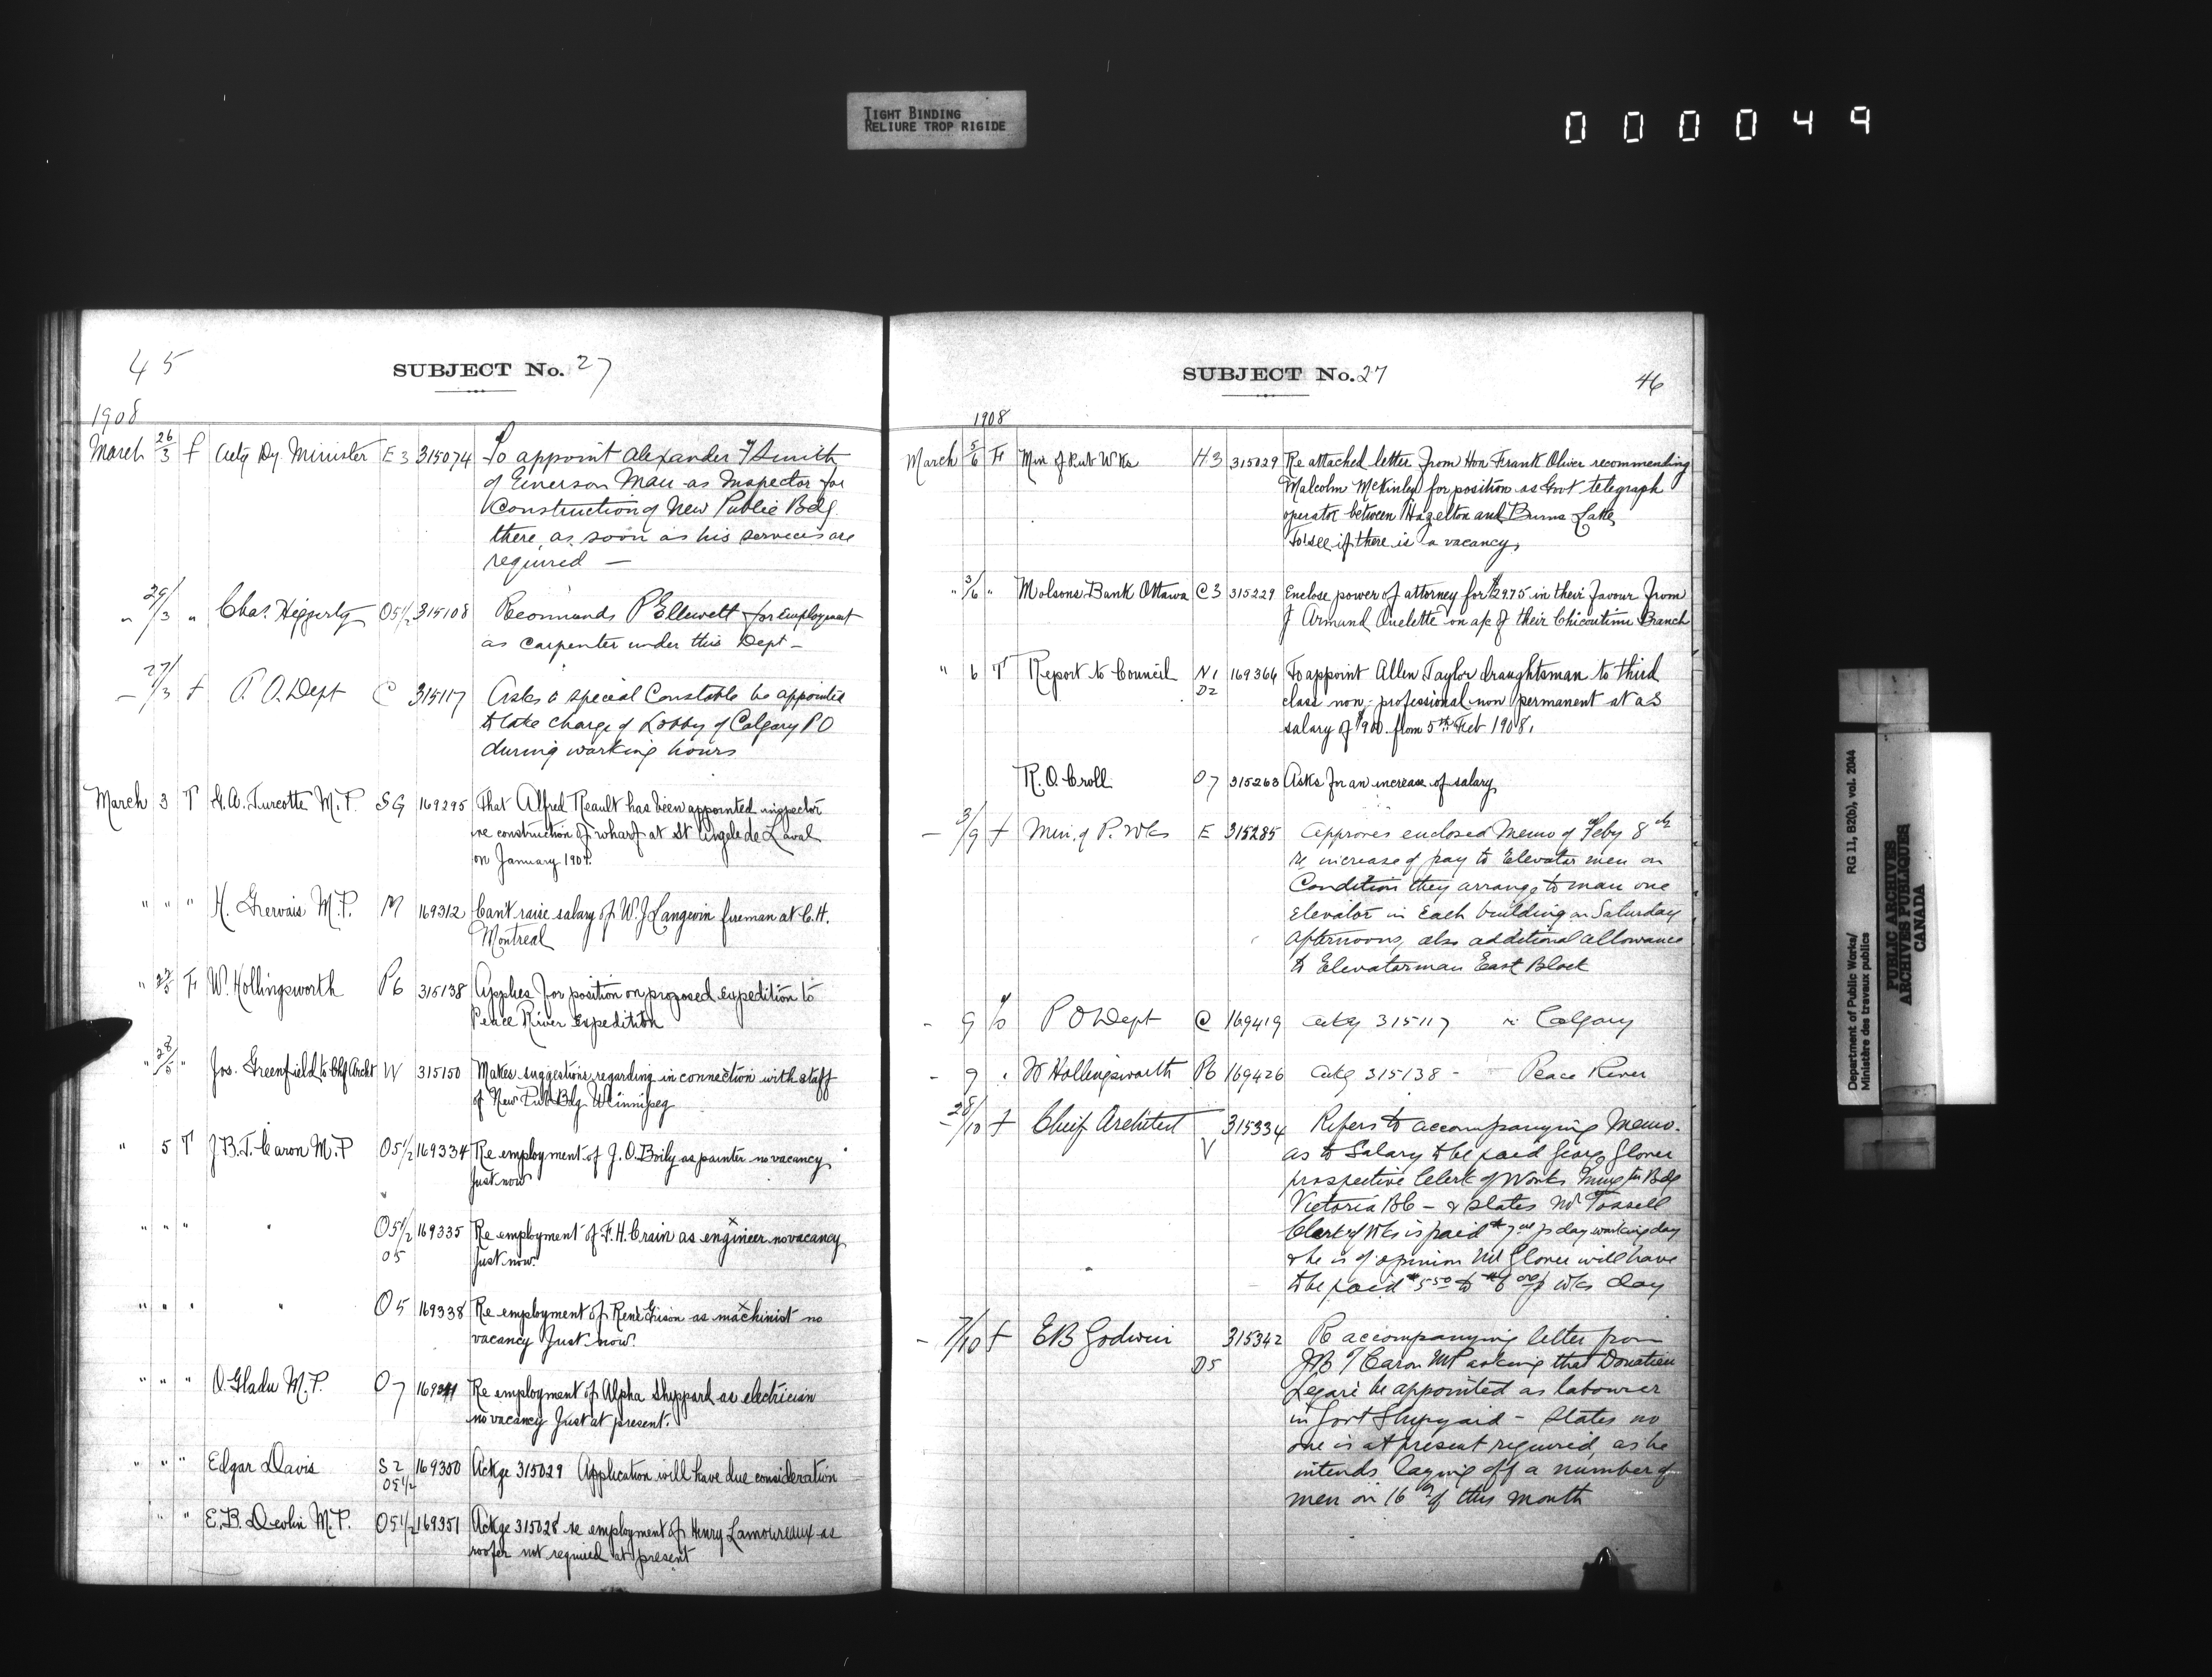 TIGHT BINDING
RELIURE TROP RIGIDE
000049
45
SUBJECT No. 27
1908
March 26/3 F Actg Dy. Minister E3 315074 To appoint Alexander F Smith
of Emerson Man as Inspector for
Construction of New Public Bdg.
there, as soon as his services are
required —
" 29/3 " Chas. Heggerty O5 1/2 315108 Recomends P Ellewelt for employment
as carpenter under this Dept —
— 27/3 F P. O. Dept C 315117 Asks a special Constable be appointed
to take charge of Lobby of Calgary PO
during working hours
March 3 T G. A. Turcotte M.P. SG 169295 That Alfred Reault has been appointed inspector
re construction of wharf at St Angele de Laval
on January 1907.
" " " H. Gervais M.P. M 169312 Cant raise salary of W. J. Langevin fireman at C.H.
Montreal
" F W. Hollingsworth P6 315138 Applies for position on proposed expedition to
Peace River Expedition
" 28/5 " Jos. Greenfield to Chf Archt W 315150 Makes suggestions regarding in connection with staff
of New Pub Bdg Winnipeg
" 5 T J. B. T. Caron M.P O5 1/2 169334 Re employment of J. O. Boily as painter no vacancy
Just now
" " " " O5 1/2 169335 Re employment of F. H. Crain as engineer no vacancy
O5 Just now.
" " " " O5 169338 Re employment of René Grison as machinist no
vacancy Just now.
" " " O. Gladu M.P. O7 Re employment of Alpha Shyppard as electrician
no vacancy Just at present.
" " " Edgar Davis S2 169350 Ackge 315029 Application will have due consideration
O5 1/2
" " E. B. Devlin M.P. O5 1/2 169351 Ackge 315028 re employment of Henry Lamoureaux as
roofer not required at present
SUBJECT No. 27
46
1908
March 5/6 F Min of Pub Wks H3 315029 Re attached letter from Hon Frank Oliver recommending
Malcolm McKinley for position as Govt telegraph
operator between Hazelton and Burns Lake
To see if there is a vacancy,
" 3/6 " Molsons Bank Ottawa C3 315229 Enclose power of attorney for $29.75 in their favour from
J Armand Ouelette on a/c of their Chicoutimi Branch
" 6 T Report to Council N1 169366 To appoint Allen Taylor draughtsman to third
D2 class non-professional non permanent at a S
salary of $900 from 5th Feb 1908.
R. O. Croll O7 315263 Asks for an increase of salary
— 3/9 F Min. of P. Wks E 315285 Approves enclosed Memo of Feby 8th
re increase of pay to Elevator men on
Condition they arrange to man one
Elevator in Each building on Saturday
afternoons, also additional allowance
to Elevatorman East Block
- 9 P O Dept C 169419 Ackg 315117 re Calgary
- 9 " W Hollingsworth P6 169426 Ackg 315138 - Peace River
- 28/10 F Cheif Architect V 315334 Refers to accompanying Memo.
as to Salary to be paid George Glover
prospective Clerk of Works Bdg
Victoria BC — & states Mr Tossell
Clerk of Wks is paid $7.00 p day working day
& he is of opinion Mr Glover will have
to be paid $5.50 to $6.00 p wks day
- 7/10 F E B Godwin D5 315342 Re accompanying letter from
J B T Caron MP asking that Donatien
Legaré be appointed as labourer
in Govt Shipyard — States no
one is at present required, as he
intends laying off a number of
men on 16th of this month
Department of Public Works/ RG 11, B2(b), vol. 2044
Ministère des travaux publics
PUBLIC ARCHIVES
ARCHIVES PUBLIQUES
CANADA